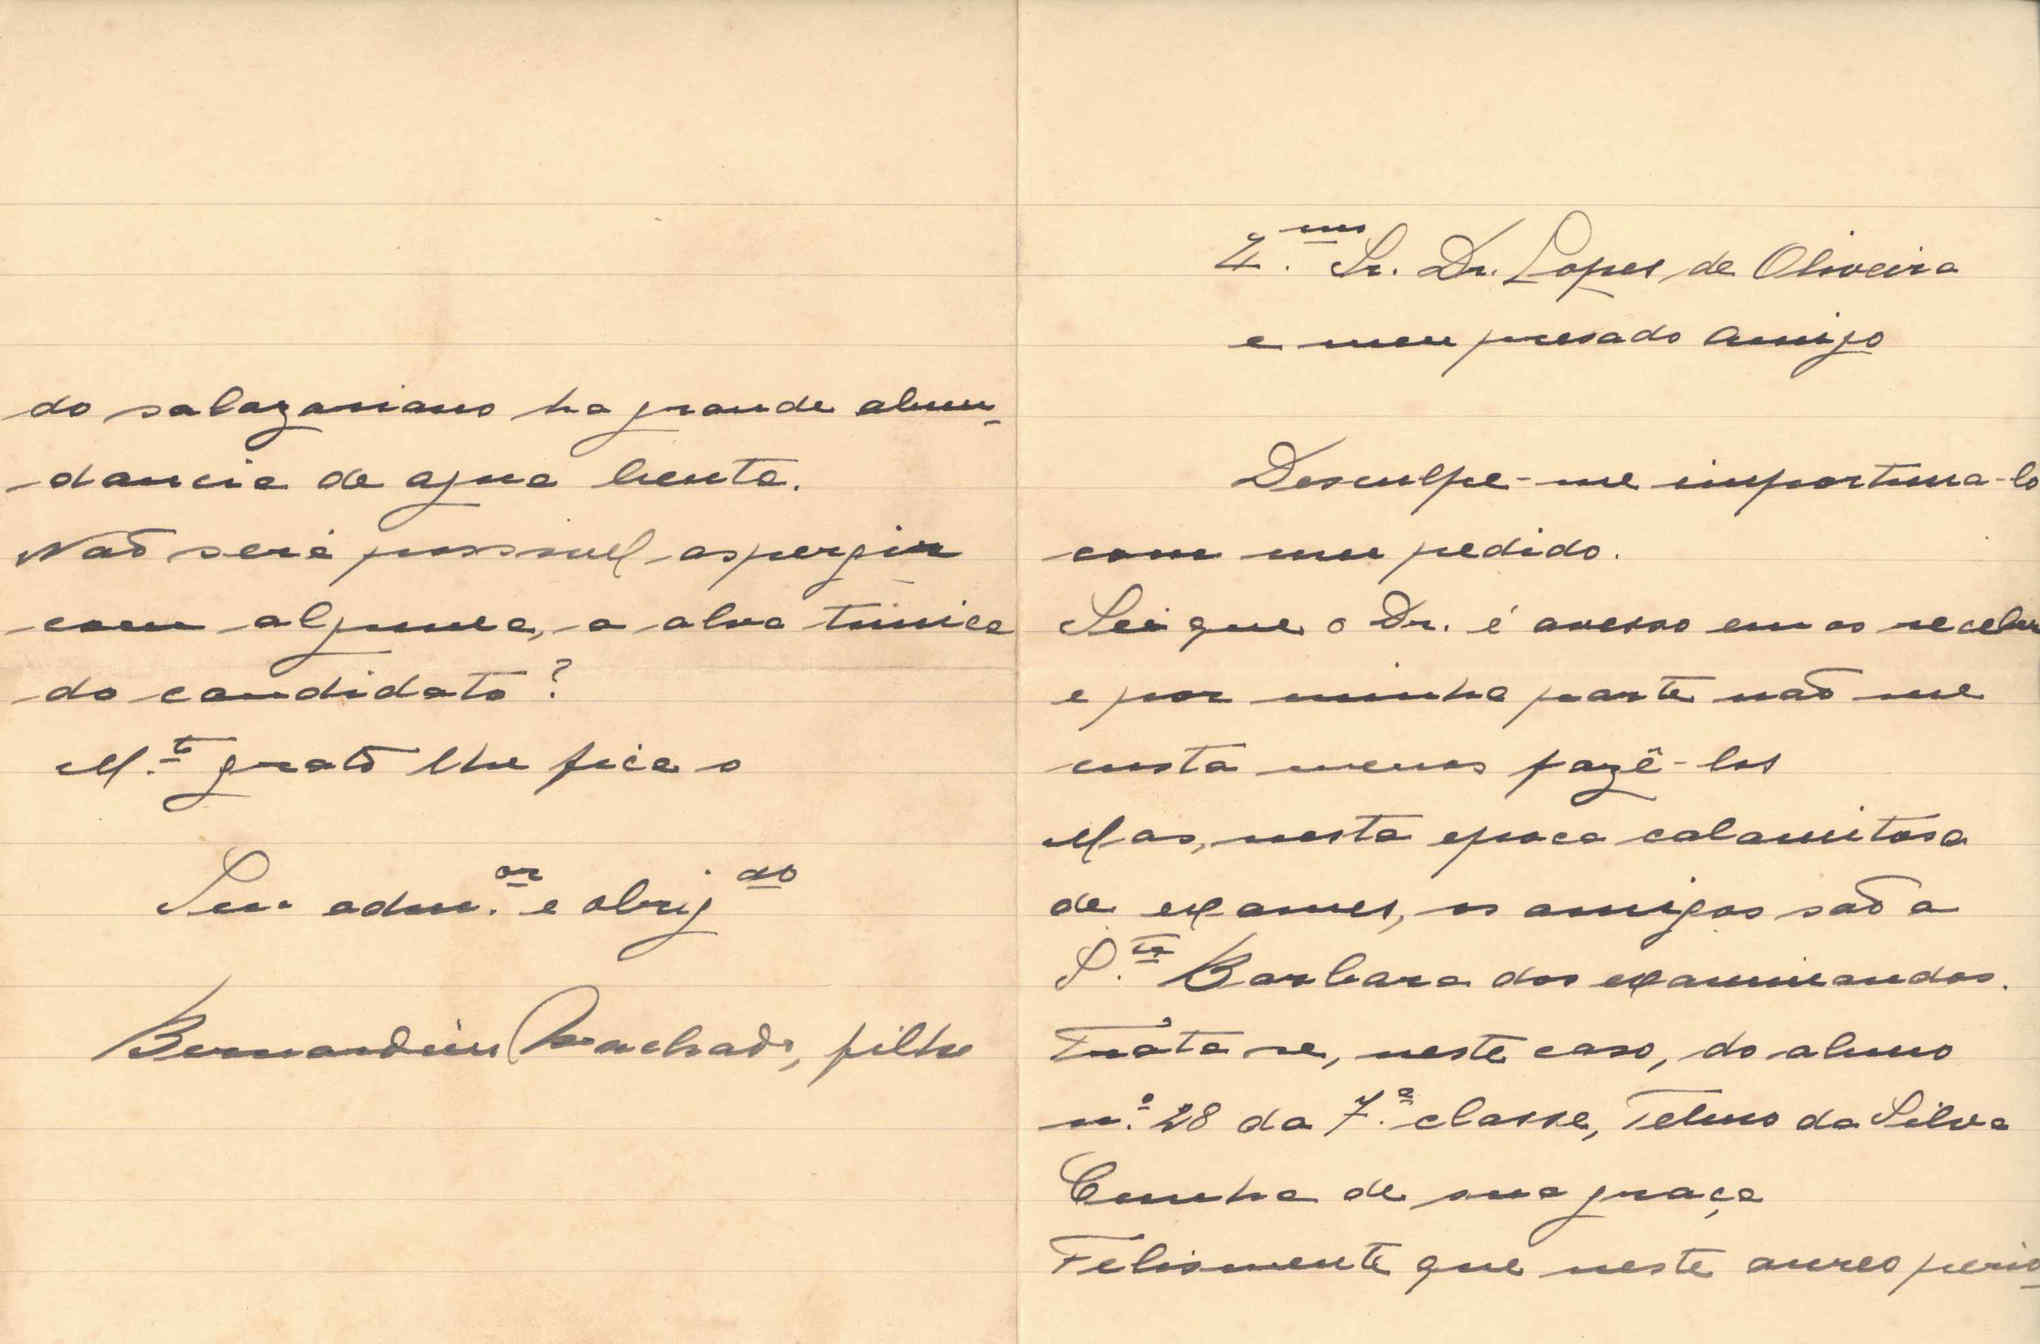 Ex.mo Sr. Dr. Lopes de Oliveira
e meu presado Amigo
Desculpe-me importuna-lo
com um pedido.
Sei que o Dr. é avesso em os receber
e por minha parte não me
custa menos fazê-los
Mas, nesta epoca calamitosa
de exames, os amigos são a
S.ta Barbara dos examinandos.
Trata se, neste caso, do aluno
n.º 28 da 7.ª classe, Telmo da Silva
Cunha de sua graça
Felismente que neste aureo perio-
do salazariano ha grande abun-
dancia de agua benta.
Não será possivel aspergir
com alguma, a alva túnica
do candidato?
M.to grato lhe fica o
Seu adm.or e obrig.do
Bernardino Machado, filho